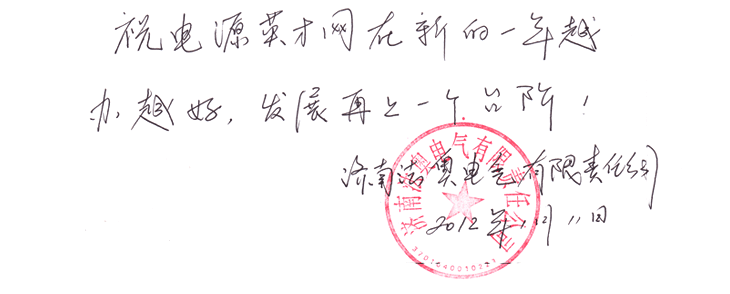 祝电源英才网在新的一年越
办越好，发展再上一个台阶！
济南洁奥电气有限责任公司
2012年1月11日
济南洁奥电气有限责任公司